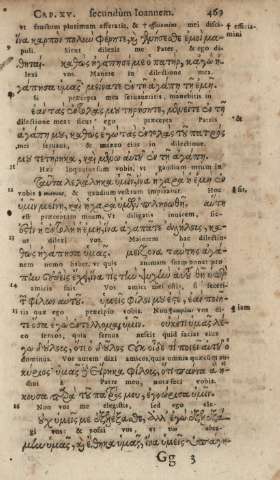 CAP. XV. secundùm Ioannem. 469
vt fructum plurimum afferatis, & efficiamini mei disci-
ἵνα καρπὸν πολὺν φέρητε, καὶ γενήσεσθε ἐμοὶ μα-
puli. Sicut dilexit me Pater, & ego di-
θηταί. καθὼς ἠγάπησέ με ὁ πατὴρ, κᾀγὼ ἠ-
lexi vos. Manete in dilectione mea.
γάπησα ὑμᾶς· μείνατε ἐν τῇ ἀγάπῃ τῇ ἐμῇ.
Si præcepta mea seruaueritis, manebitis in
ἐὰν τὰς ἐντολάς μου τηρήσητε, μενεῖτε ἐν τῇ
dilectione mea: sicut ego præcepta Patris
ἀγάπῃ μου, καθὼς ἐγὼ τὰς ἐντολὰς τοῦ πατρός
mei seruaui, & maneo eius in dilectione.
μου τετήρηκα, καὶ μένω αὐτοῦ ἐν τῇ ἀγάπῃ.
Hæc loquutus sum vobis, vt gaudium meum in
Ταῦτα λελάληκα ὑμῖν, ἵνα ἡ χαρὰ ἡ ἐμὴ ἐν
vobis & gaudium vestrum impleatur. Hoc
ὑμῖν μείνῃ, καὶ ἡ χαρὰ ὑμῶν πληρωθῇ. αὕτη
est præceptum meum, Vt diligatis inuicem, sic-
ἐστὶν ἡ ἐντολὴ ἡ ἐμὴ, ἵνα ἀγαπᾶτε ἀλλήλους, κα-
ut dilexi vos. Maiorem hac dilectio-
θὼς ἠγάπησα ὑμᾶς. μείζονα ταύτης ἀγά-
nem nemo habet, vt quis animam suam ponat pro
πην οὐδεὶς ἔχει, ἵνα τὶς τὴν ψυχὴν αὑτοῦ θῇ ὑπὲρ
amicis suis. Vos amici mei estis, si fecerit-
τῶν φίλων αὑτοῦ. ὑμεῖς φίλοι μου ἐστὲ, ἐὰν ποιῆ-
tis quæ ego præcipio vobis. Non dicam vos
τε ὅσα ἐγὼ ἐντέλλομαι ὑμῖν. οὐκέτι ὑμᾶς λέ-
seruos, quia seruus nescit quid faciat eius
γω δούλους, ὅτι ὁ δοῦλος οὐκ οἶδε τί ποιεῖ αὐτοῦ ὁ
dominus. Vos autem dixi amicos, quia omnia quæcunque au-
κύριος· ὑμᾶς δὲ εἴρηκα φίλους, ὅτι πάντα ἃ ἤ-
diui à Patre meo, nota feci vobis.
κουσα παρὰ τοῦ πατρός μου, ἐγνώρισα ὑμῖν.
Non vos me elegistis, sed ego ele-
οὐχ ὑμεῖς με ἐξελέξασθε, ἀλλ' ἐγὼ ἐξελεξά-
gi vos, & posui vos, vt vos abea-
μην ὑμᾶς, καὶ ἔθηκα ὑμᾶς, ἵνα ὑμεῖς ὑπάγη-
Gg 3